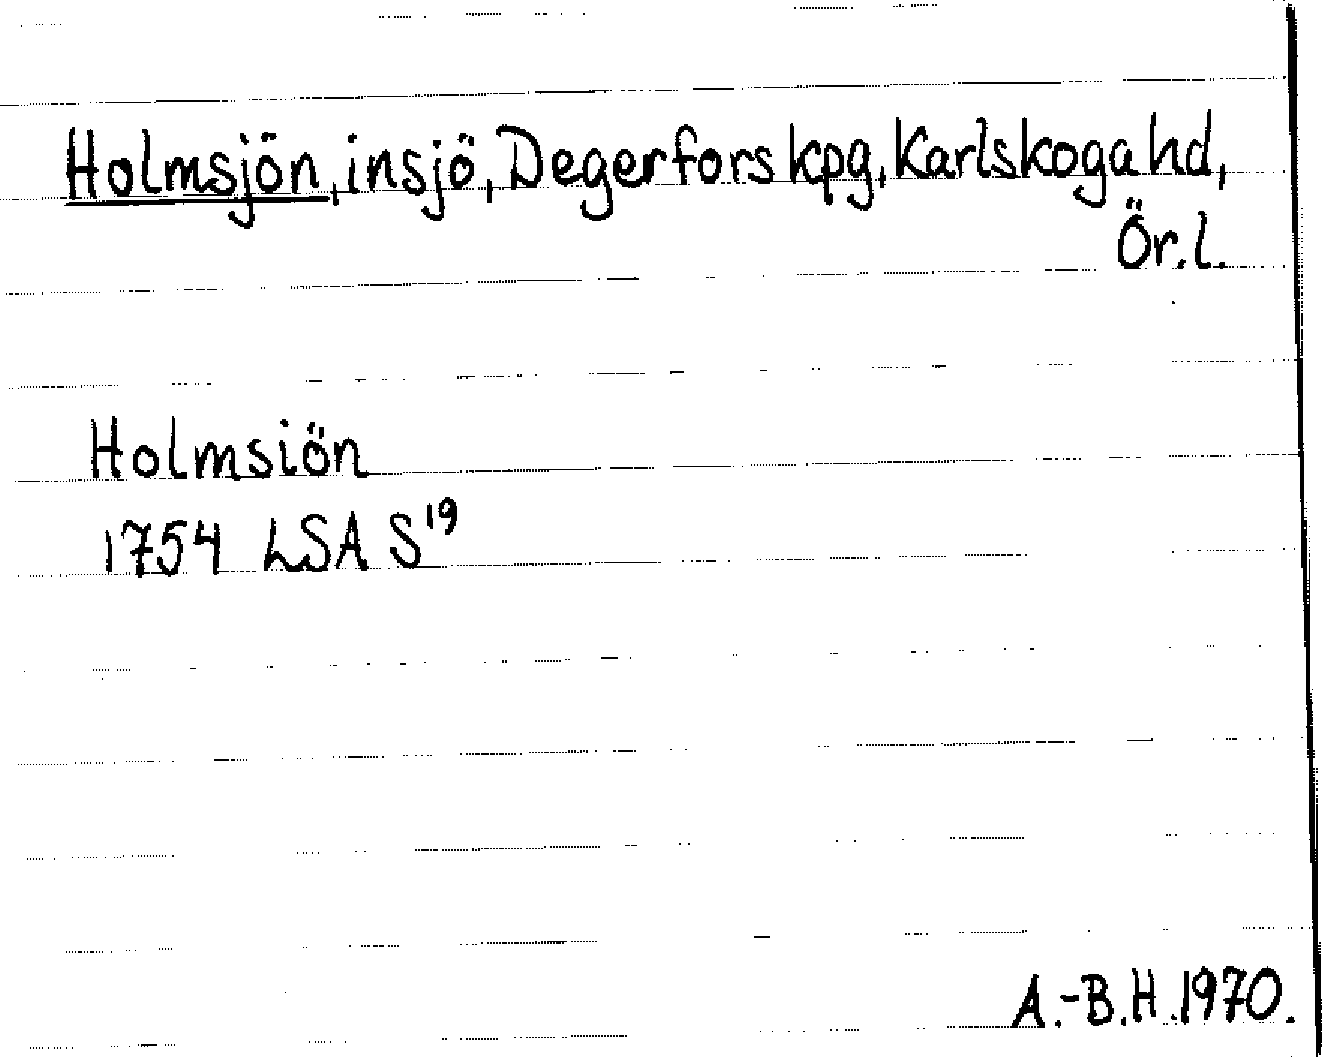 Holmsjön, insjö, Degerfors kpg, Karlskoga hd,
Ör.l.
Holmsiön
1754 LSA S¹⁹
A.-B.H. 1970.